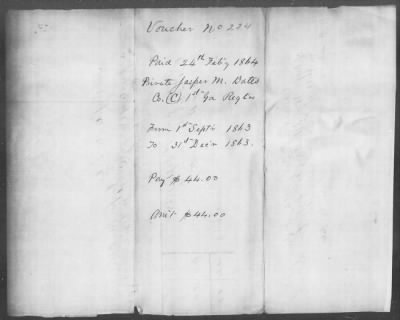 Voucher No 224
Paid 24th Feb'y 1864
Private Jasper M. Bates
Co. (C) 1st Ga Regtrs
From 1st Sept'r 1863
To 31st Dec'r 1863.
Pay $44.00
Am't $44.00